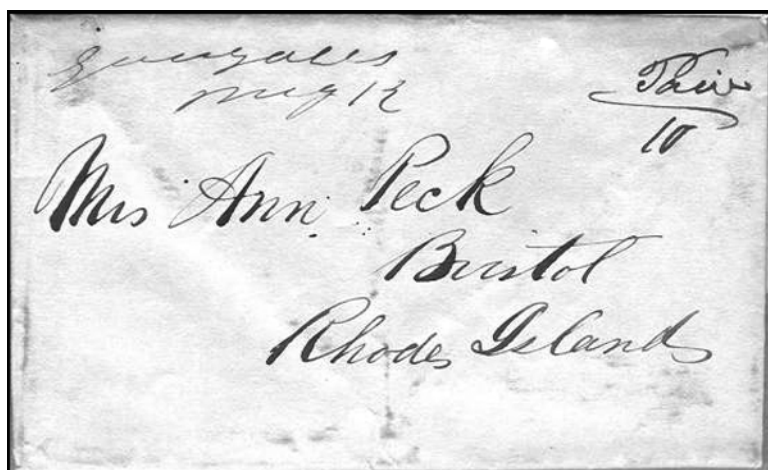 Gonzales
Aug 12
Paid
10
Mrs Ann Peck
Bristol
Rhodes Island